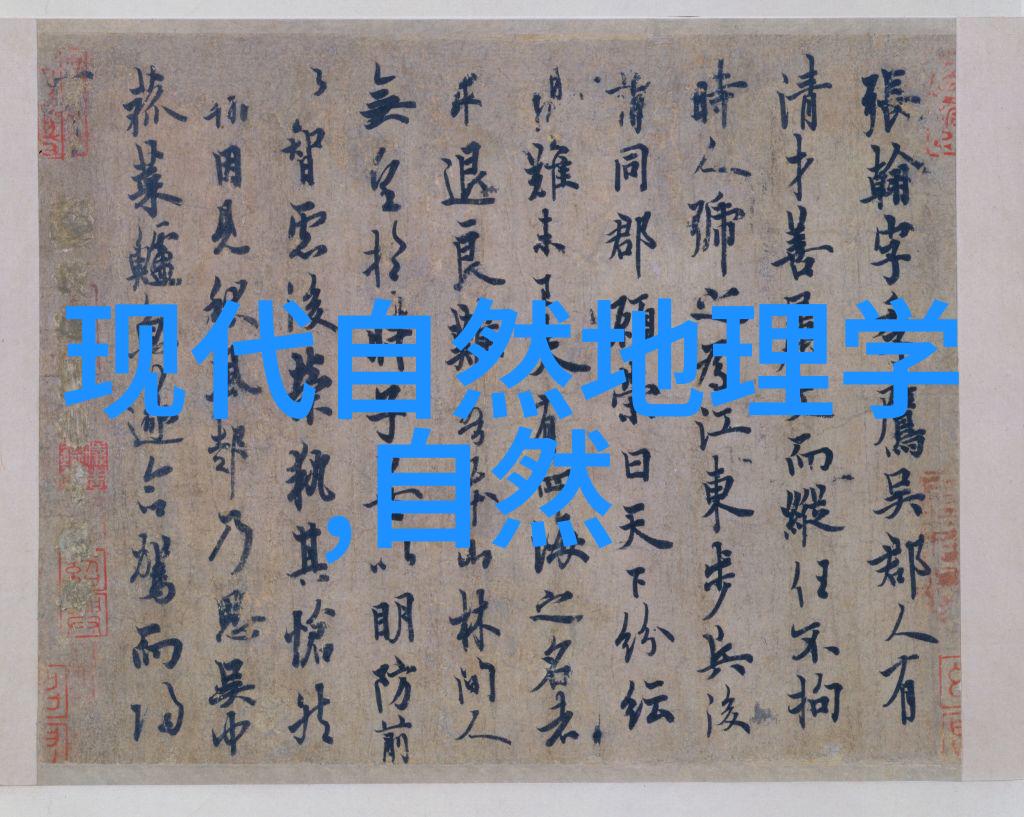 现代自然地理学
,自然
張翰字季鷹吳郡人有
清才善屬文而縱任不拘
時人號之為江東步兵後
同郡顧榮曰天下紛紜
難未已夫有四海之名者
求退良難吾本山林間人
無望於時子善以明防前
以智慮後榮執其愴然
翰因見秋風起乃思吳中
菰菜鱸魚遂命駕而歸